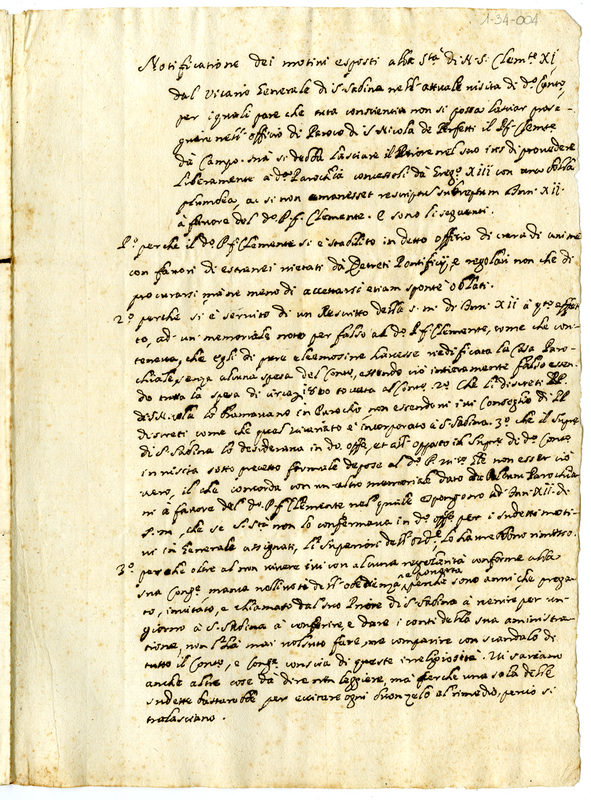 1-34-004
Notificatione dei motivi esposti alla Stà di N. S. Clemte XI
dal Vicario Generale di S. Sabina nell' attuale visita di do Conto,
per i quali pare che tuta conscientia non si possa lasciar prose-
guire nell' offitio di Paroco di S. Nicola de Perfetti il P. f. Clemte
dà Campo. mà si debba lasciare il Priore nel suo ius di provedere
liberamente à da Parochia concessoli dà Greg.o XIII con una bolla
plumbea, ac si non emanasset rescriptus Inn. XII.
à favore del do P. f. Clemente. E sono li seguenti.
P.o perche il do P. f. Clemente si è stabilito in detto offitio di cura di anime
con favori di estranei vietati dà Decreti Pontificij, e regolari non che di
procurarsi mà ne meno di accettarsi etiam sponte oblati.
2.o perche si è servito di un Rescritto della s. m. di Inn. XII à
to, ad un memoriale noto per falso al do P. f. Clemente, come che con-
teneva, che egli di pure eleemosine havesse riedificata la Casa Paro-
chiale senza alcuna spesa del Conto, essendo ciò intieramente falso essen-
do tutta la spesa di circa toccata al Conto. 2.o Che li discreti PP.
di S. Nicola lo bramavano in Parocho non essendoni ivi Conseglio di PP.
discreti come che quel Vicariato è incorporato à S. Sabina. 3.o che il Supre
di S. Sabina lo desiderava in do offo, et all' opposto il Supre di do Conto
in visita sotto precetto formale depose al do P. Vico Gle non esser ciò
vero, il che concorda con un altro memoriale dato da Parochia
ni à favore del do P. f. Clemente nel quale espongono ad Inn. XII. di
s. m., che se S. Stà non lo confermava in do offo per i sudetti moti-
vi in Generale assignati, li Superiori dell' ordo lo havrebbono rimosso.
3.o perche oltre al non vivere ivi con alcuna regolarità conforme alla
sua Congo manca nell' voto di obedienza, e povertà perche sono anni che prega-
to, invitato, e chiamato dal suo Priore di S. Sabina à venire per un
giorno à S. Sabina à conferire, e dare i conti della sua aministra-
tione, non l' hà mai volsuto fare, ne comparire con scandalo di
tutto il Conto, e Congo conscia di queste irreligiosità. Vi sareano
anche altre cose dà dire non leggiere, mà perche una sola delle
sudette bastarebbe per eccitare ogni buon zelo al rimedio, perciò si
tralasciano.